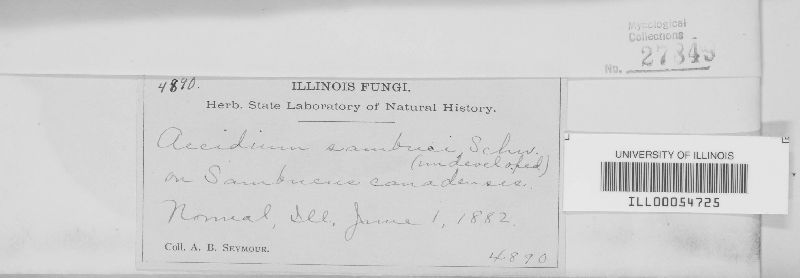 Mycological
Collections
No. 27843
4890.
ILLINOIS FUNGI.
Herb. State Laboratory of Natural History.
Aecidium sambuci, Schw.
(undeveloped)
on Sambucus canadensis.
Normal, Ill. June 1, 1882.
Coll. A. B. Seymour.
4890
UNIVERSITY OF ILLINOIS
ILL00054725